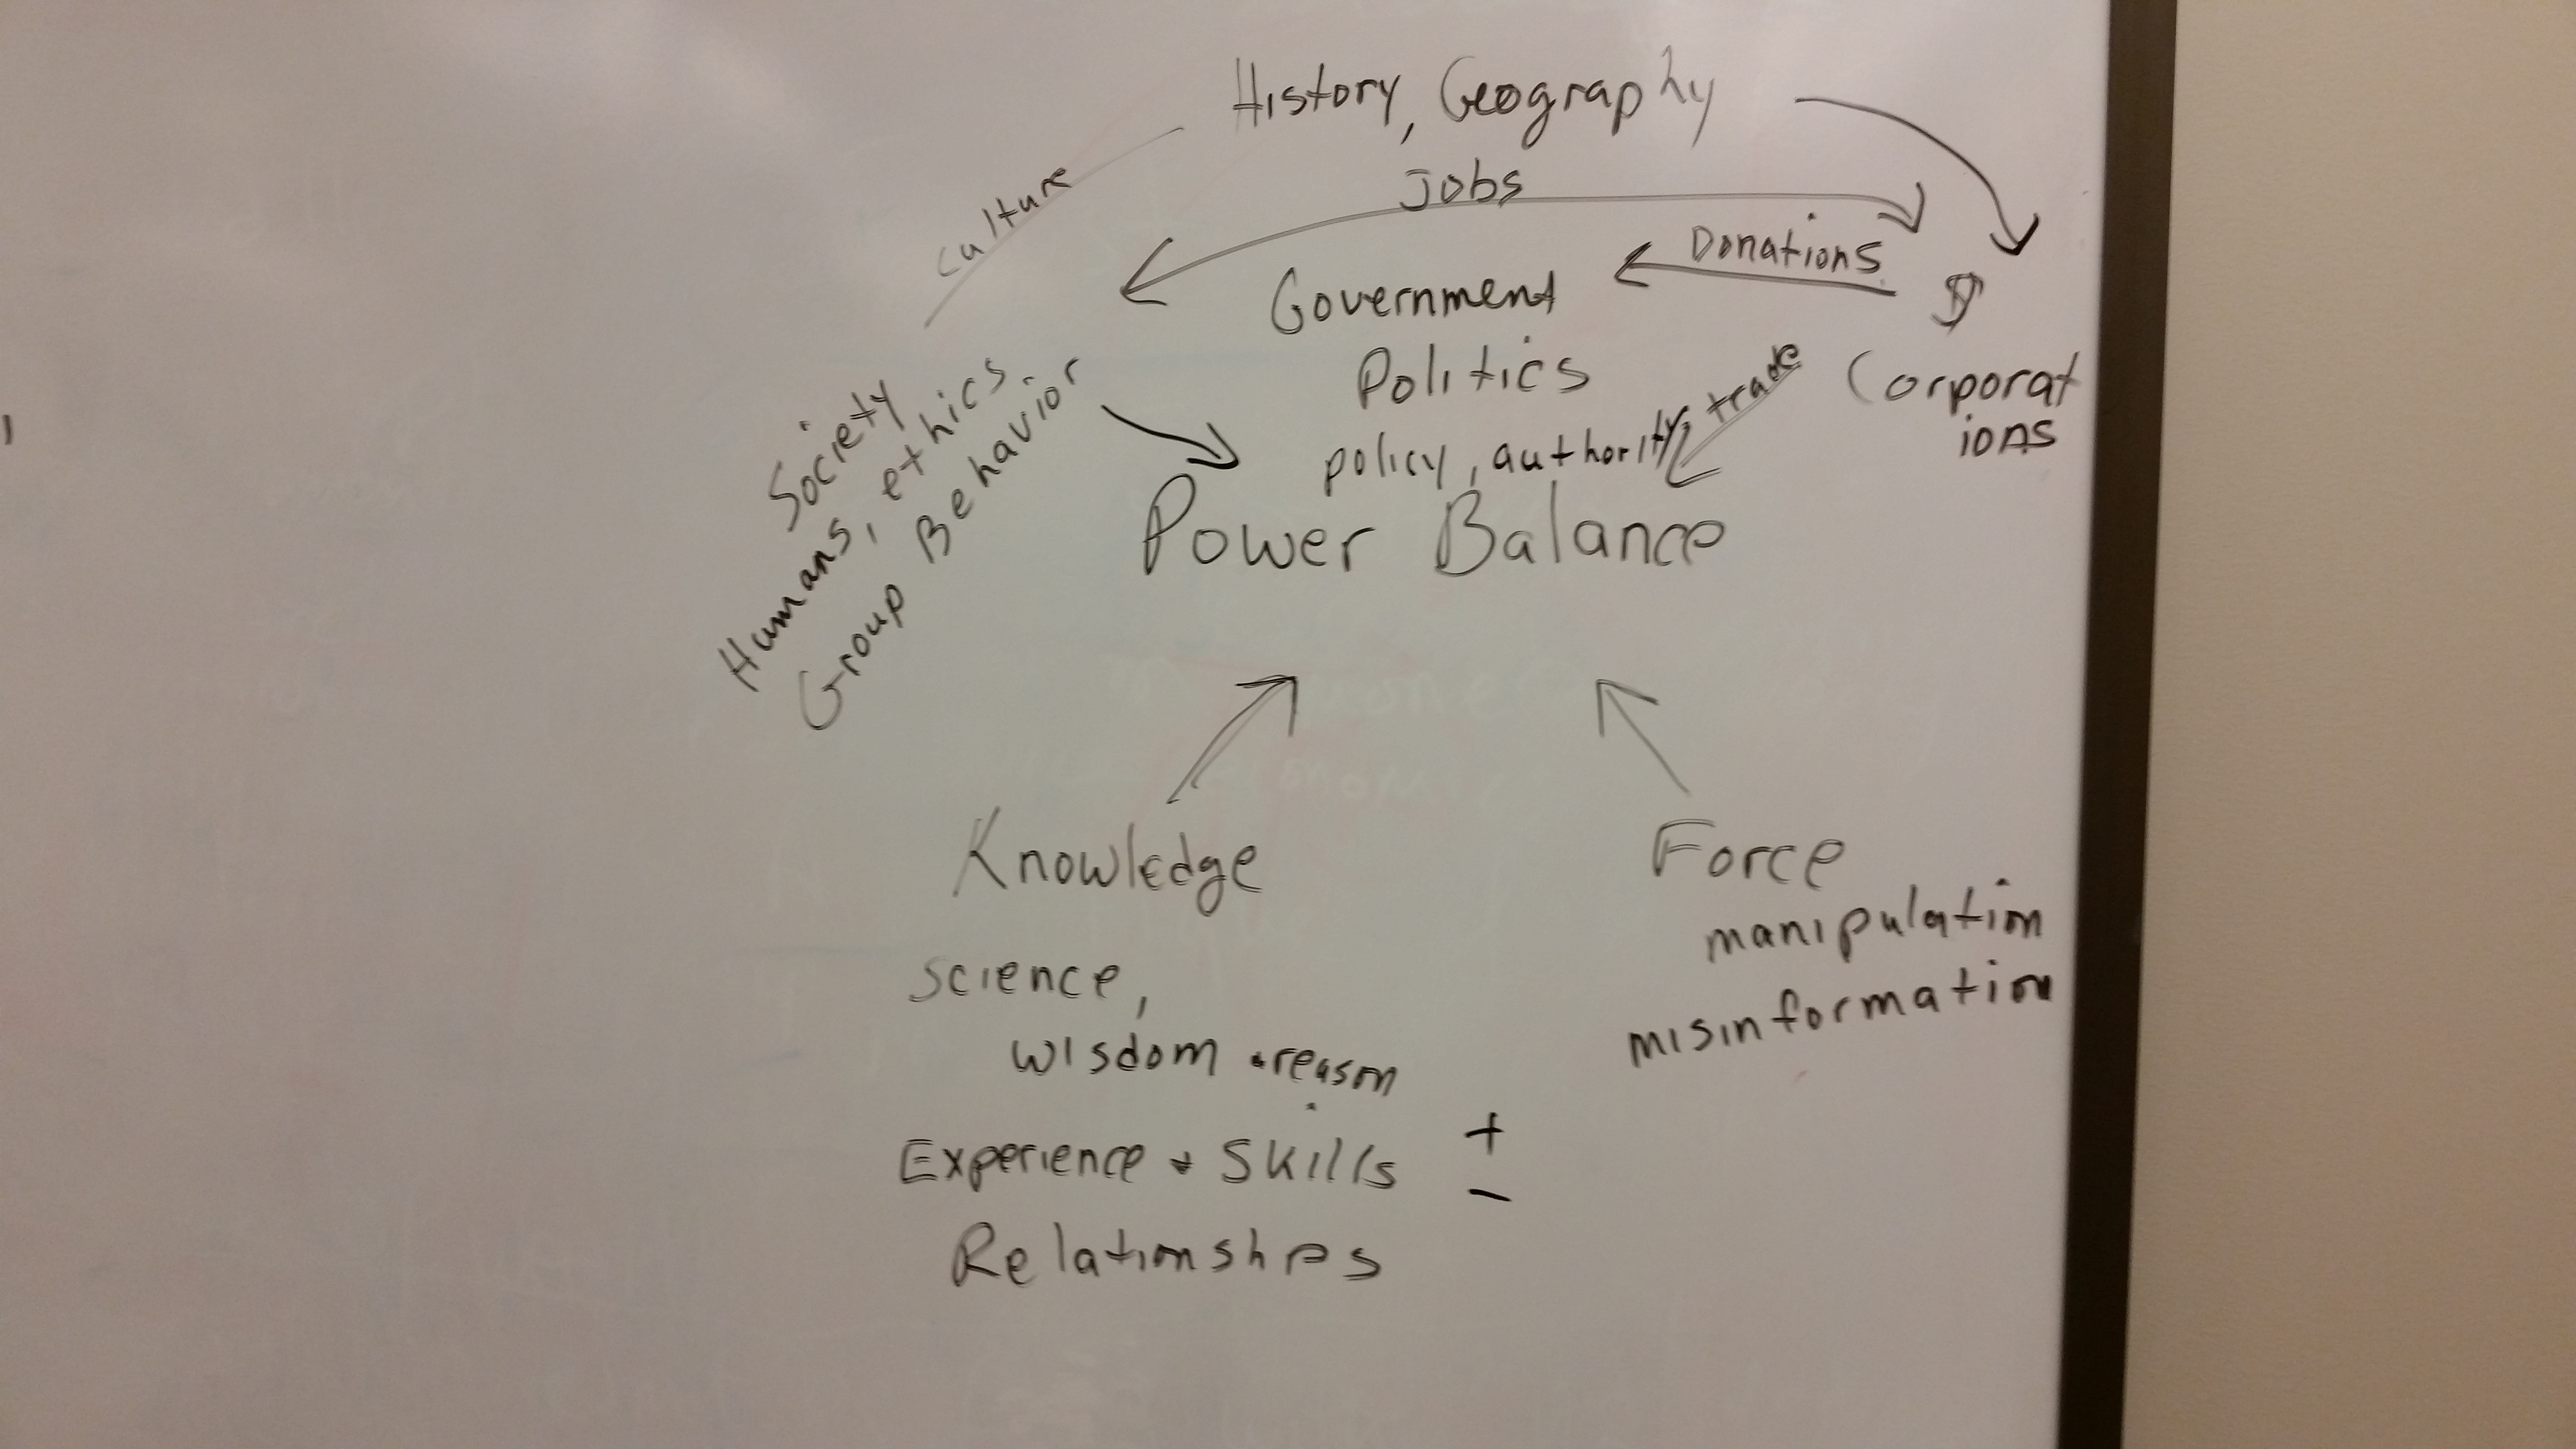 History, Geography
culture
Jobs
Donations
Government
$
Politics
trade
Corporat
ions
policy, authority,
Society
Humans, ethics
Group Behavior
Power Balance
Knowledge
Force
manipulation
misinformation
Science,
wisdom + reason
Experience + Skills
+
-
Relationshps